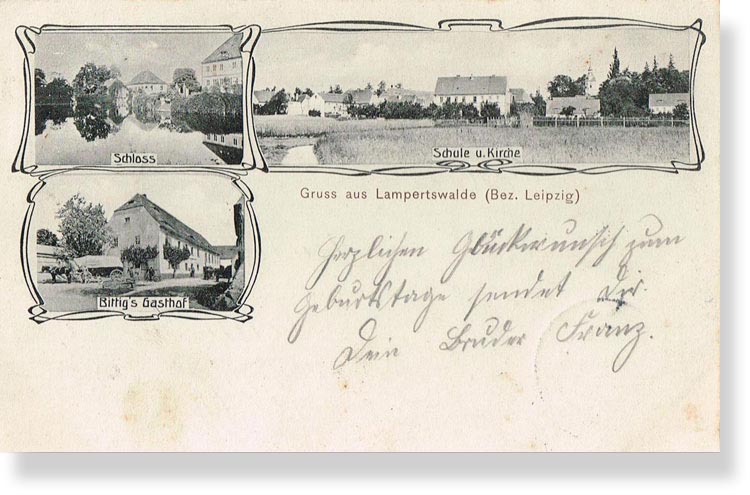 Schloss
Schule u. Kirche
Gruss aus Lampertswalde (Bez. Leipzig)
Bittig's Gasthof
Herzlichen Glückwunsch zum
Geburtstage sendet Dir
Dein Bruder Franz.